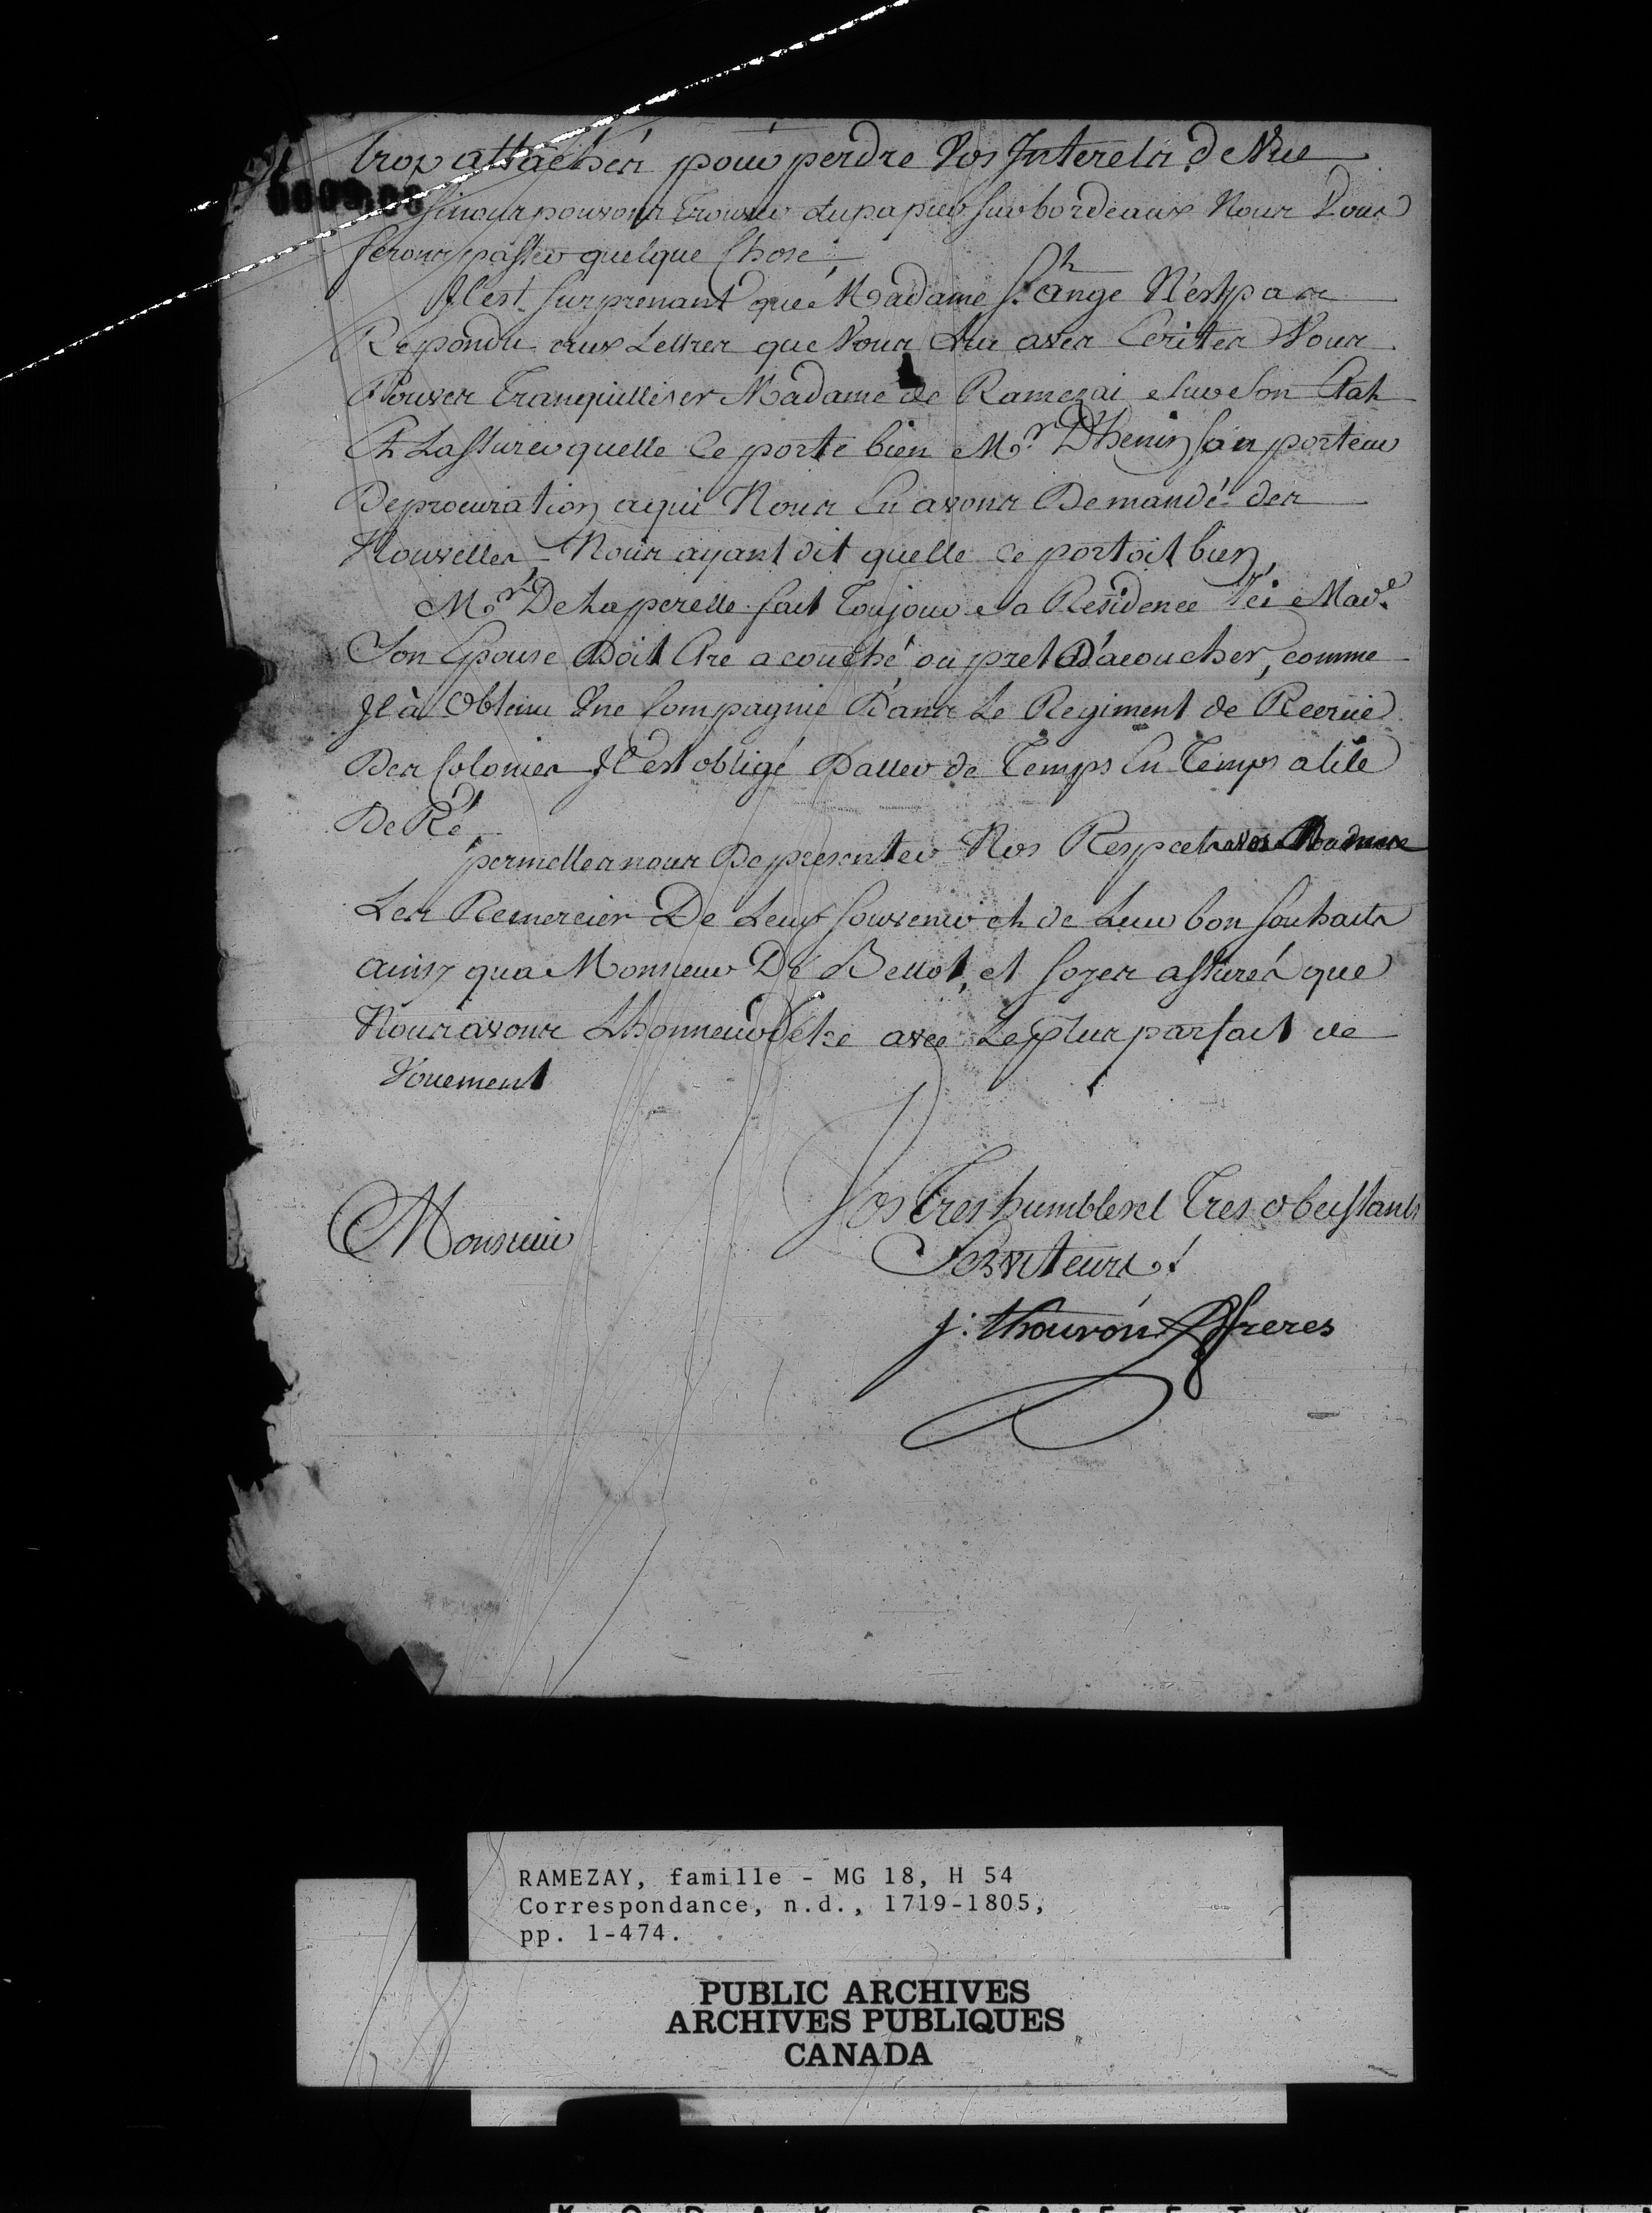 trop attachés pour perdre Vos Interets de Vue
Sinous pouvons Trouver du papier sur bordeaux Nous Vous
ferons passer quelque Chose,
Il est Surprenant que Madame St. ange N'est pas
Repondu aux Lettres que Vous Lui aves Ecrites Vous
Pouves Tranquilliser Madame de Ramezai sur Son Etat
Et Lassurer quelle Ce porte bien Mr. Dhenin Son porteur
De procuration aqui Nous En avons Demandé des
Nouvelles Nous ayant dit quelle ce portoit bien,
Mr. De Laperelle fait Toujour sa Residence Ici Made.
Son Epouse Doit Etre acouché ou pret D'acoucher, comme
Il à Obtenu Une Compagnie Dans Le Regiment de Recrüe
Des Colonies Il est obligé Daller de Temps En Temps alile
De Ré,
permettes nous De presenter Nos Respects a vos Madame
Les Remercier De Leur Souvenir et de Leur bon Souhaits
ainsy qua Monsieur De Bellot, et Soyes assurés que
Nous avons Lhonneur Detre avec Le plus parfait de
Vouement
Monsieur
Vos Tres humbles et Tres obeissants
Serviteurs.
j: thouron & freres
RAMEZAY, famille - MG 18, H 54
Correspondance, n.d., 1719-1805,
pp. 1-474.
PUBLIC ARCHIVES
ARCHIVES PUBLIQUES
CANADA